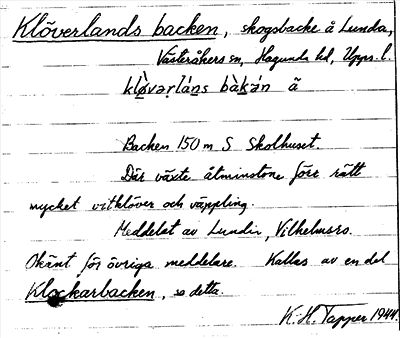 Klöverlands backen, skogsbacke å Lunda,
Västeråkers sn, Hagunda hd, Upps. l.
Backen 150 m S Skolhuset.
Där växte åtminstone förr rätt
mycket vitklöver och väppling.
Meddelat av Lundin, Vilhelmsro.
Okänt för övriga meddelare. Kallas av en del
Klockarbacken, se detta.
K.-H. Tapper 1944